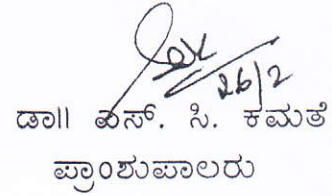 26/2
ಡಾ|| ಎಸ್. ಸಿ. ಕಮತೆ
ಪ್ರಾಂಶುಪಾಲರು